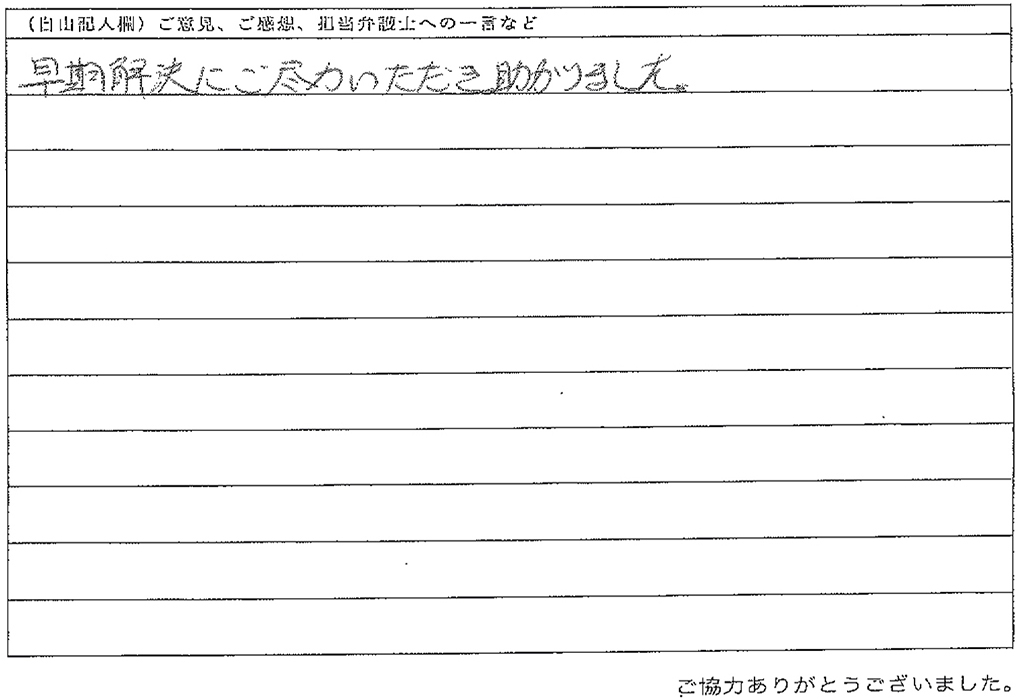 （自由記入欄）ご意見、ご感想、担当弁護士への一言など
早期解決にご尽力いただき助かりました。
ご協力ありがとうございました。